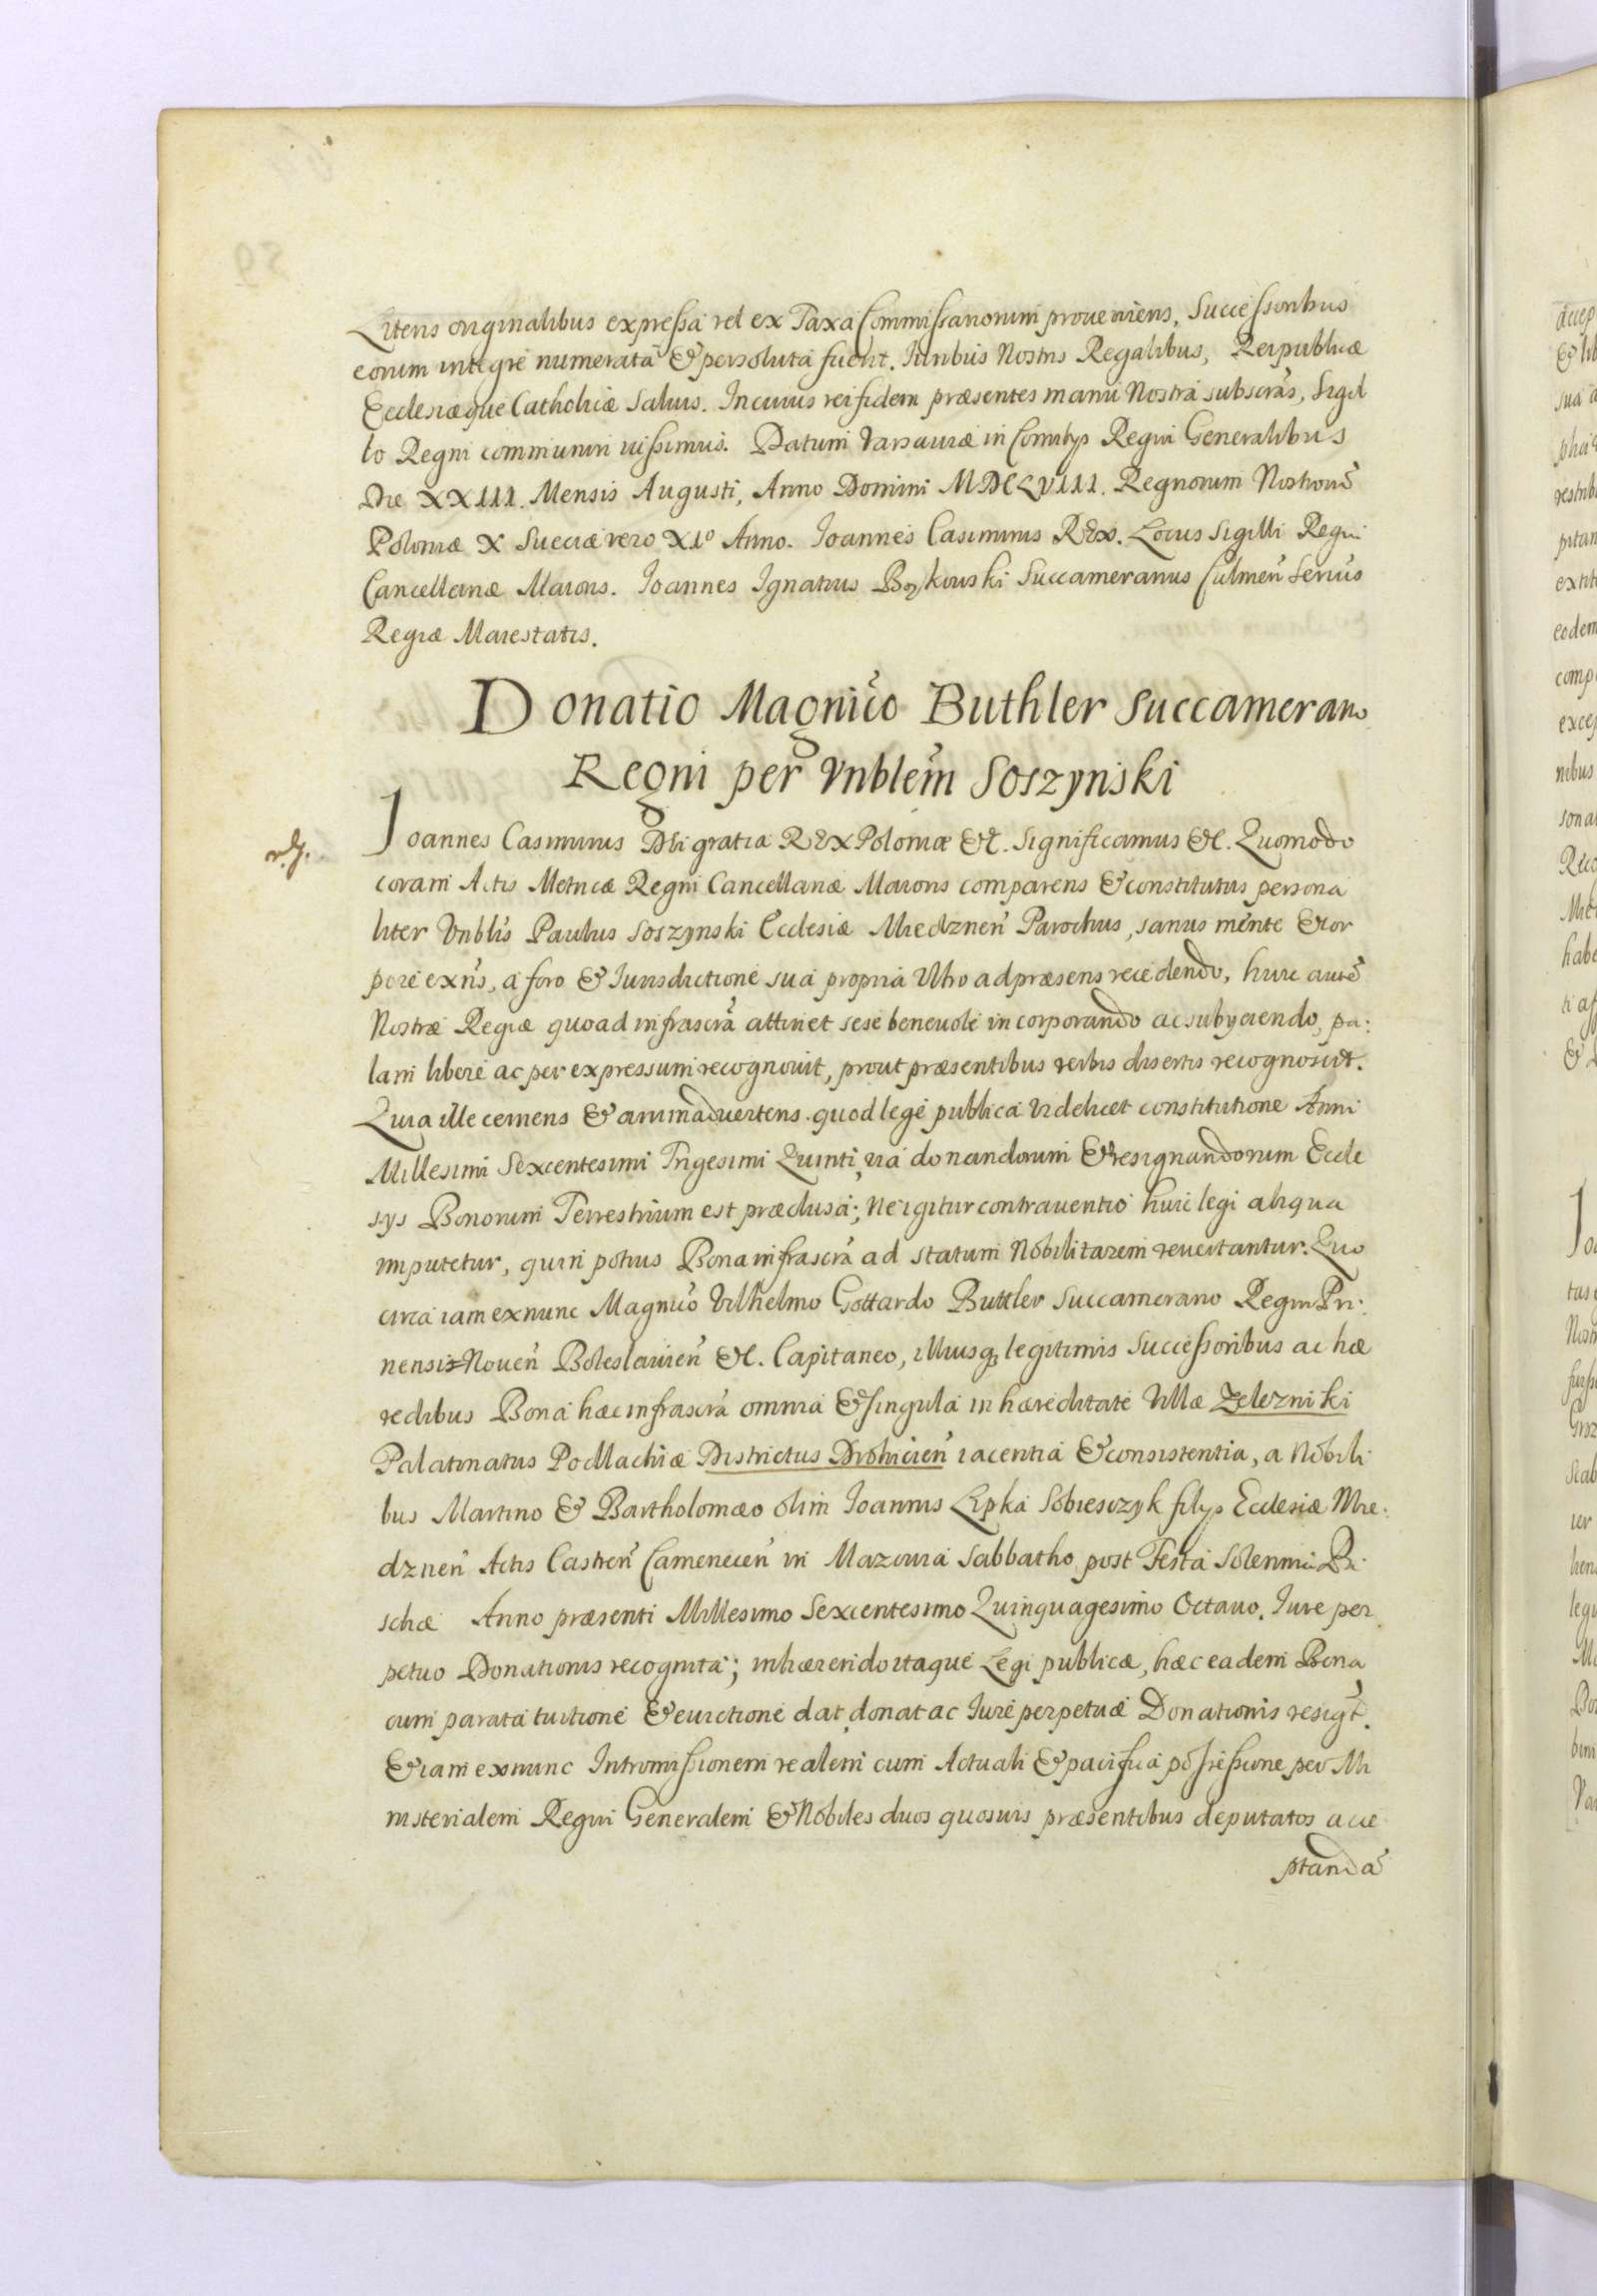 Literis originalibus expressa vel ex Taxa Commissariorum proueniens, Successoribus
eorum integre numerata & persoluta fuerit. Iuribus Nostris Regalibus, Reipublicæ
Ecclesiæque Catholicæ saluis. In cuius rei fidem præsentes manu Nostra subscrãs, Sigil
lo Regni communiri iussimus. Datum Varsauiæ in Comitÿs Regni Generalibus
Die XXIII. Mensis Augusti, Anno Domini MDCLVIII. Regnorum Nostrorũ
Poloniæ X Sueciæ vero XIº Anno. Ioannes Casimirus REX. Locus Sigilli Regni
Cancellariæ Maioris. Ioannes Ignatius Bąkowski Succamerarius Culmen̄ Ser̄ius
Regiæ Maiestatis.
Donatio Magnĩco Buthler Succamerario
Regni per Vnblẽm Soszynski
Ioannes Casimirus Dei gratia REX Poloniæ &c. Significamus &c. Quomodo
coram Actis Metricæ Regni Cancellariæ Maioris comparens & constitutus persona
liter Vnblis Paulus Soszynski Ecclesiæ Miedznen̄ Parochus, sanus mente & cor
pore exñs, a foro & Iurisdictione sua propria Vltro ad præsens recedendo, huic autẽ
Nostræ Regiæ quoad infrascrã attinet sese beneuole incorporando ac subÿciendo, pa:
lam libere ac per expressum recognouit, prout præsentibus verbis disertis recognoscit.
Quia ille cernens & animaduertens quod lege publica videlicet constitutione Anni
Millesimi Sexcentesimi Trigesimi Quinti, via donandorum & resignandorum Eccle
sÿs Bonorum Terrestrium est præclusa; ne igitur contrauentio huic legi aliqua
imputetur, quin potius Bona infrascrã ad statum Nobilitarem reuertantur. Quo
circa iam ex nunc Magnĩco Vilhelmo Gottardo Buttler Succamerario Regni Pri:
nensi Nouen̄ Boleslauien̄ &c. Capitaneo, illiusq3 legitimis Successoribus ac hæ
redibus Bona hæc infrascrã omnia & singula in hæreditate Villæ Zelezniki
Palatinatus Podlachiæ Districtus Drohicien̄ iacentia & consistentia, a Nobili
bus Martino & Bartholomæo olim Ioannis Lipka Sobiesczyk filÿs Ecclesiæ Mie:
dznen̄ Actis Castren̄ Camenecen̄ in Mazouia Sabbatho post Festa Solennia Pa
schæ Anno præsenti Millesimo Sexcentesimo Quinquagesimo Octauo. Iure per
petuo Donationis recognita; inhærendo itaque Legi publicæ, hæc eadem Bona
cum parata tuitione & euictione dat, donat ac Iure perpetuæ Donationis resigt̃.
& iam ex nunc Intromissionem realem cum Actuali & pacifica possessione per Mi
nisterialem Regni Generalem & Nobiles duos quosuis præsentibus deputatos acce
ptandã